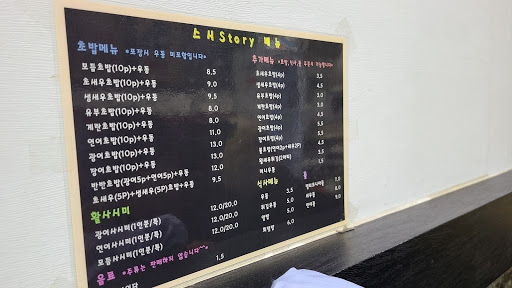 스시Story 메뉴
초밥메뉴 *포장시 우동 미포함입니다*
모듬초밥(10p)+우동 8.5
초새우초밥(10p)+우동 9.0
생새우초밥(10p)+우동 9.5
유부초밥(10p)+우동 8.0
계란초밥(10p)+우동 8.0
연어초밥(10p)+우동 11.0
광어초밥(10p)+우동 13.0
장어초밥(10p)+우동 13.0
반반초밥(광어5p+연어5p)+우동 12.0
초새우(5P)+생새우(5P)초밥+우동 9.5
활사시미
광어사시미(1인분/특) 12.0/20.0
연어사시미(1인분/특) 12.0/20.0
모듬사시미(1인분/특) 12.0/20.0
음료 *주류는 판매하지 않습니다~*
1.5
추가메뉴
초새우초밥(4p) 3.5
생새우초밥(4p)
유부초밥(4p)
계란초밥(4p)
연어초밥(4p)
광어초밥(4p)
장어초밥(4p)
미니우동
식사메뉴
우동 5.5
튀김우동 6.0
알밥 5.0
회덮밥 9.0